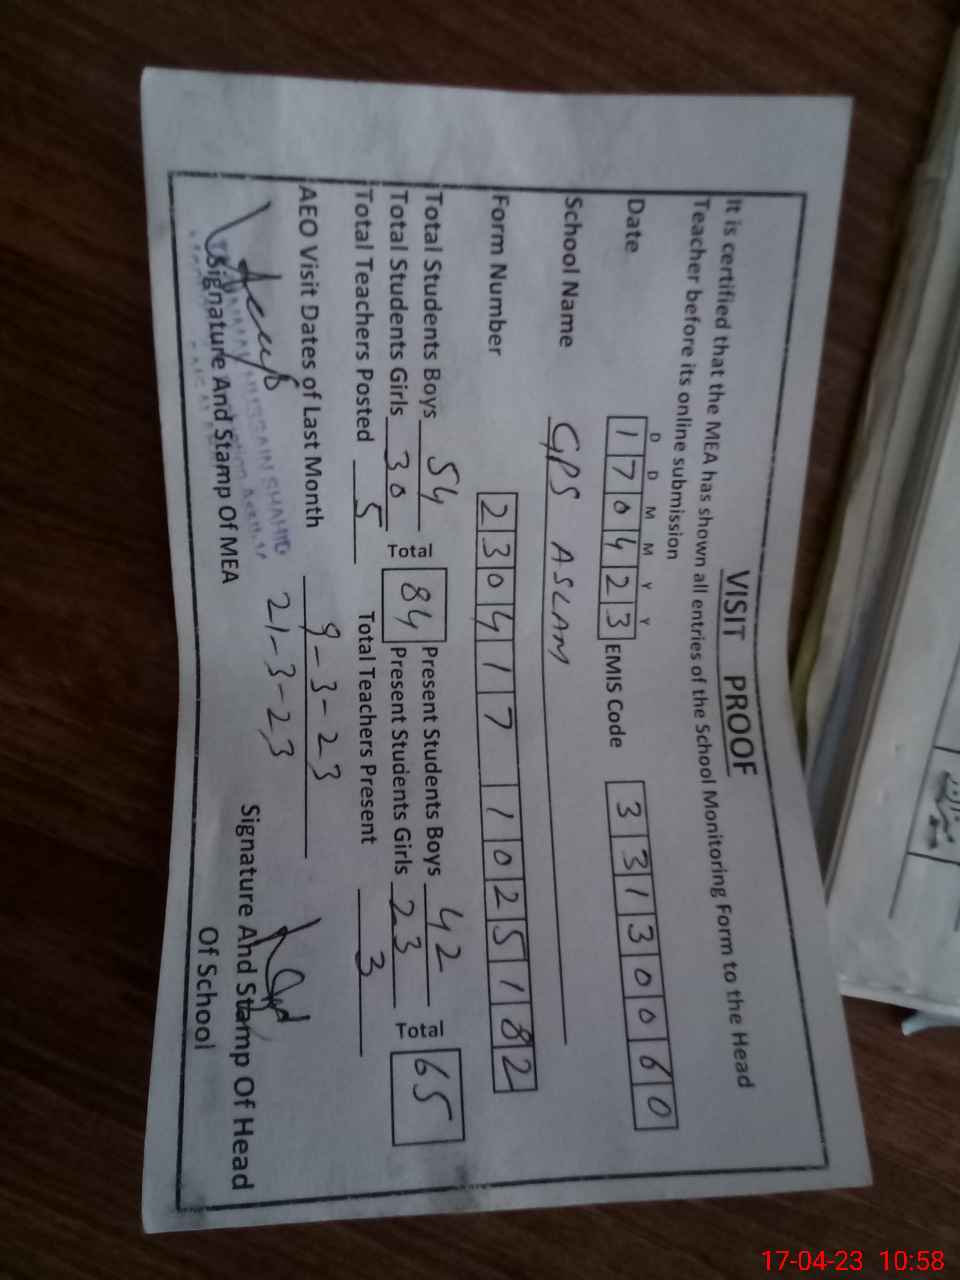 VISIT PROOF
It is certified that the MEA has shown all entries of the School Monitoring Form to the Head
Teacher before its online submission
D D M M Y Y
Date 170423 EMIS Code 33130060
School Name GPS ASLAM
Form Number 2304171025182
Total Students Boys 54 Total 84 Present Students Boys 42 Total 65
Total Students Girls 30 Present Students Girls 23
Total Teachers Posted 5 Total Teachers Present 3
AEO Visit Dates of Last Month 9-3-23
21-3-23
HUSSAIN SHAHID
Signature And Stamp Of MEA
Signature And Stamp Of Head
Of School
17-04-23 10:58